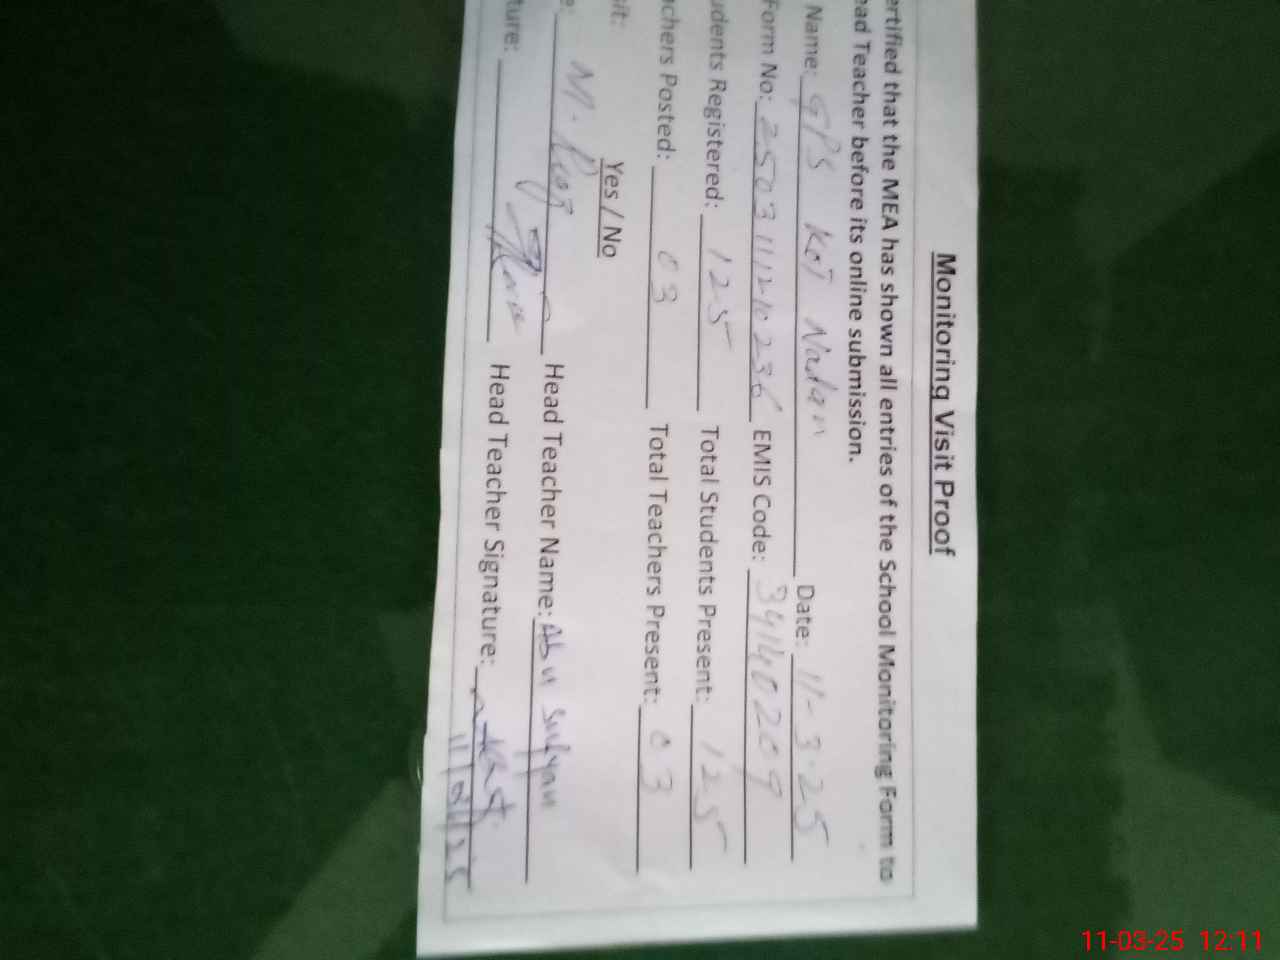 Monitoring Visit Proof
ertified that the MEA has shown all entries of the School Monitoring Form to
ead Teacher before its online submission.
Name: GPS Kot Nadam Date: 11-3-25
Form No: 250311121023 6 EMIS Code: 34140209
udents Registered: 125 Total Students Present: 125
achers Posted: 03 Total Teachers Present: 03
it: Yes / No
e: M. Head Teacher Name: Abu Sufyan
ture: Head Teacher Signature:
11-03-25 12:11